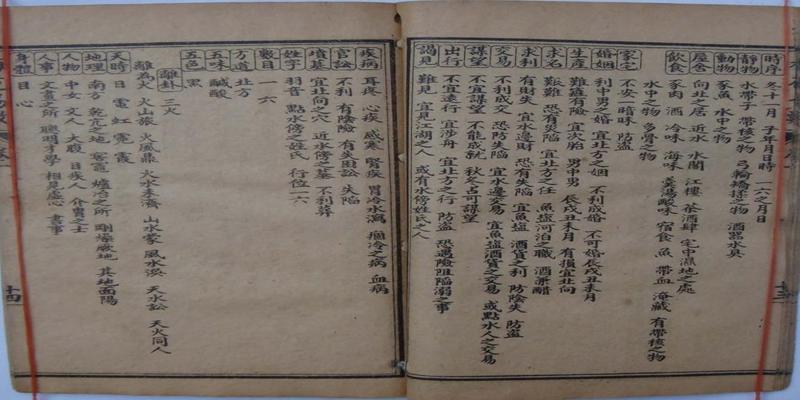 時序 冬十一月 子年月日時 一六之月日
靜物 水帶子 帶核之物 弓輪矯揉之物 酒器水具
動物 豕魚 水中之物
屋舍 向北之居 近水 水閣 江樓 茶酒肆 宅中濕地之處
飲食 豕肉 酒 冷味 海味 羹湯酸味 宿食 魚 帶血 淹藏 有帶核之物
水中之物 多骨之物
家宅 不安 暗昧 防盜
婚姻 利中男之婚 宜北方之婚 不利成婚 不可婚辰戌丑未月
生產 難產有險 宜次胎 男中男 辰戌丑未月 有損宜北向
求名 艱難 恐有災陷 宜北方之任 魚塩河泊之職 酒兼醋
求利 有財失 宜水邊財 恐有失陷 宜魚塩 酒貨之利 防陰失 防盜
交易 不利成交 恐防失陷 宜水邊交易 宜魚塩酒貨之交易 或點水人之交易
謀望 不宜謀望 不能成就 秋冬占可謀望
出行 不宜遠行 宜涉舟 宜北方之行 防盜 恐遇險阻陷溺之事
謁見 難見 宜見江湖之人 或有水傍姓氏之人
疾病 耳疼 心疾 感寒 腎疾 胃冷水瀉 痼冷之病 血病
官訟 不利 有陰險 有失困訟 失陷
墳墓 宜北向之穴 近水傍之墓 不利葬
姓字 羽音 點水傍之姓氏 行位一六
數目 一 六
方道 北方
五味 鹹 酸
五色 黑
離卦 三火
離為火 火山旅 火風鼎 火水未濟 山水蒙 風水渙 天水訟 天火同人
天時 日 電 虹 霓 霞
地理 南方 乾亢之地 窰竈 爐冶之所 剛燥厥地 其地面陽
人物 中女 文人 大腹 目疾人 介冑之士
人事 文畫之所 聰明才學 相見虛心 書事
身體 目 心
十三
十四